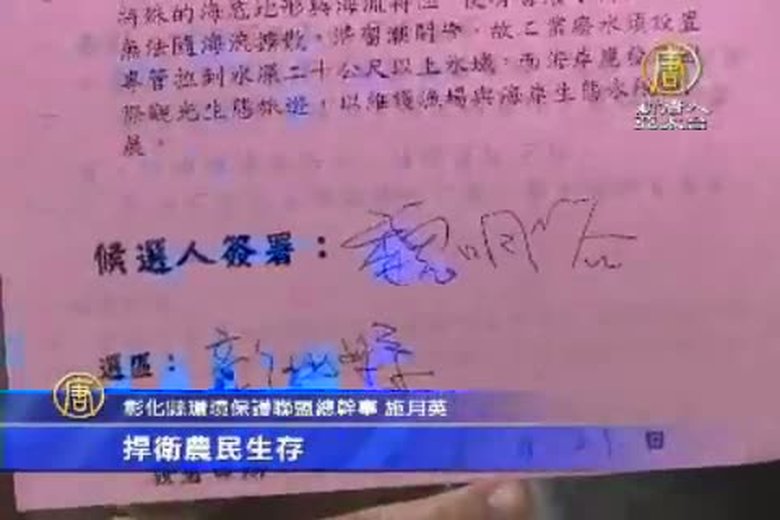 無法隨海流擴散，滯留潮間帶，故工業廢水須設置
專管拉到水深二十公尺以上水域，西海岸應發
際觀光生態旅遊，以維護漁場與海岸生態永
展。
唐
新唐人
亞太台
候選人簽署：魏明谷
選區：彰化縣
唐
彰化縣環境保護聯盟總幹事 施月英
捍衛農民生存
日